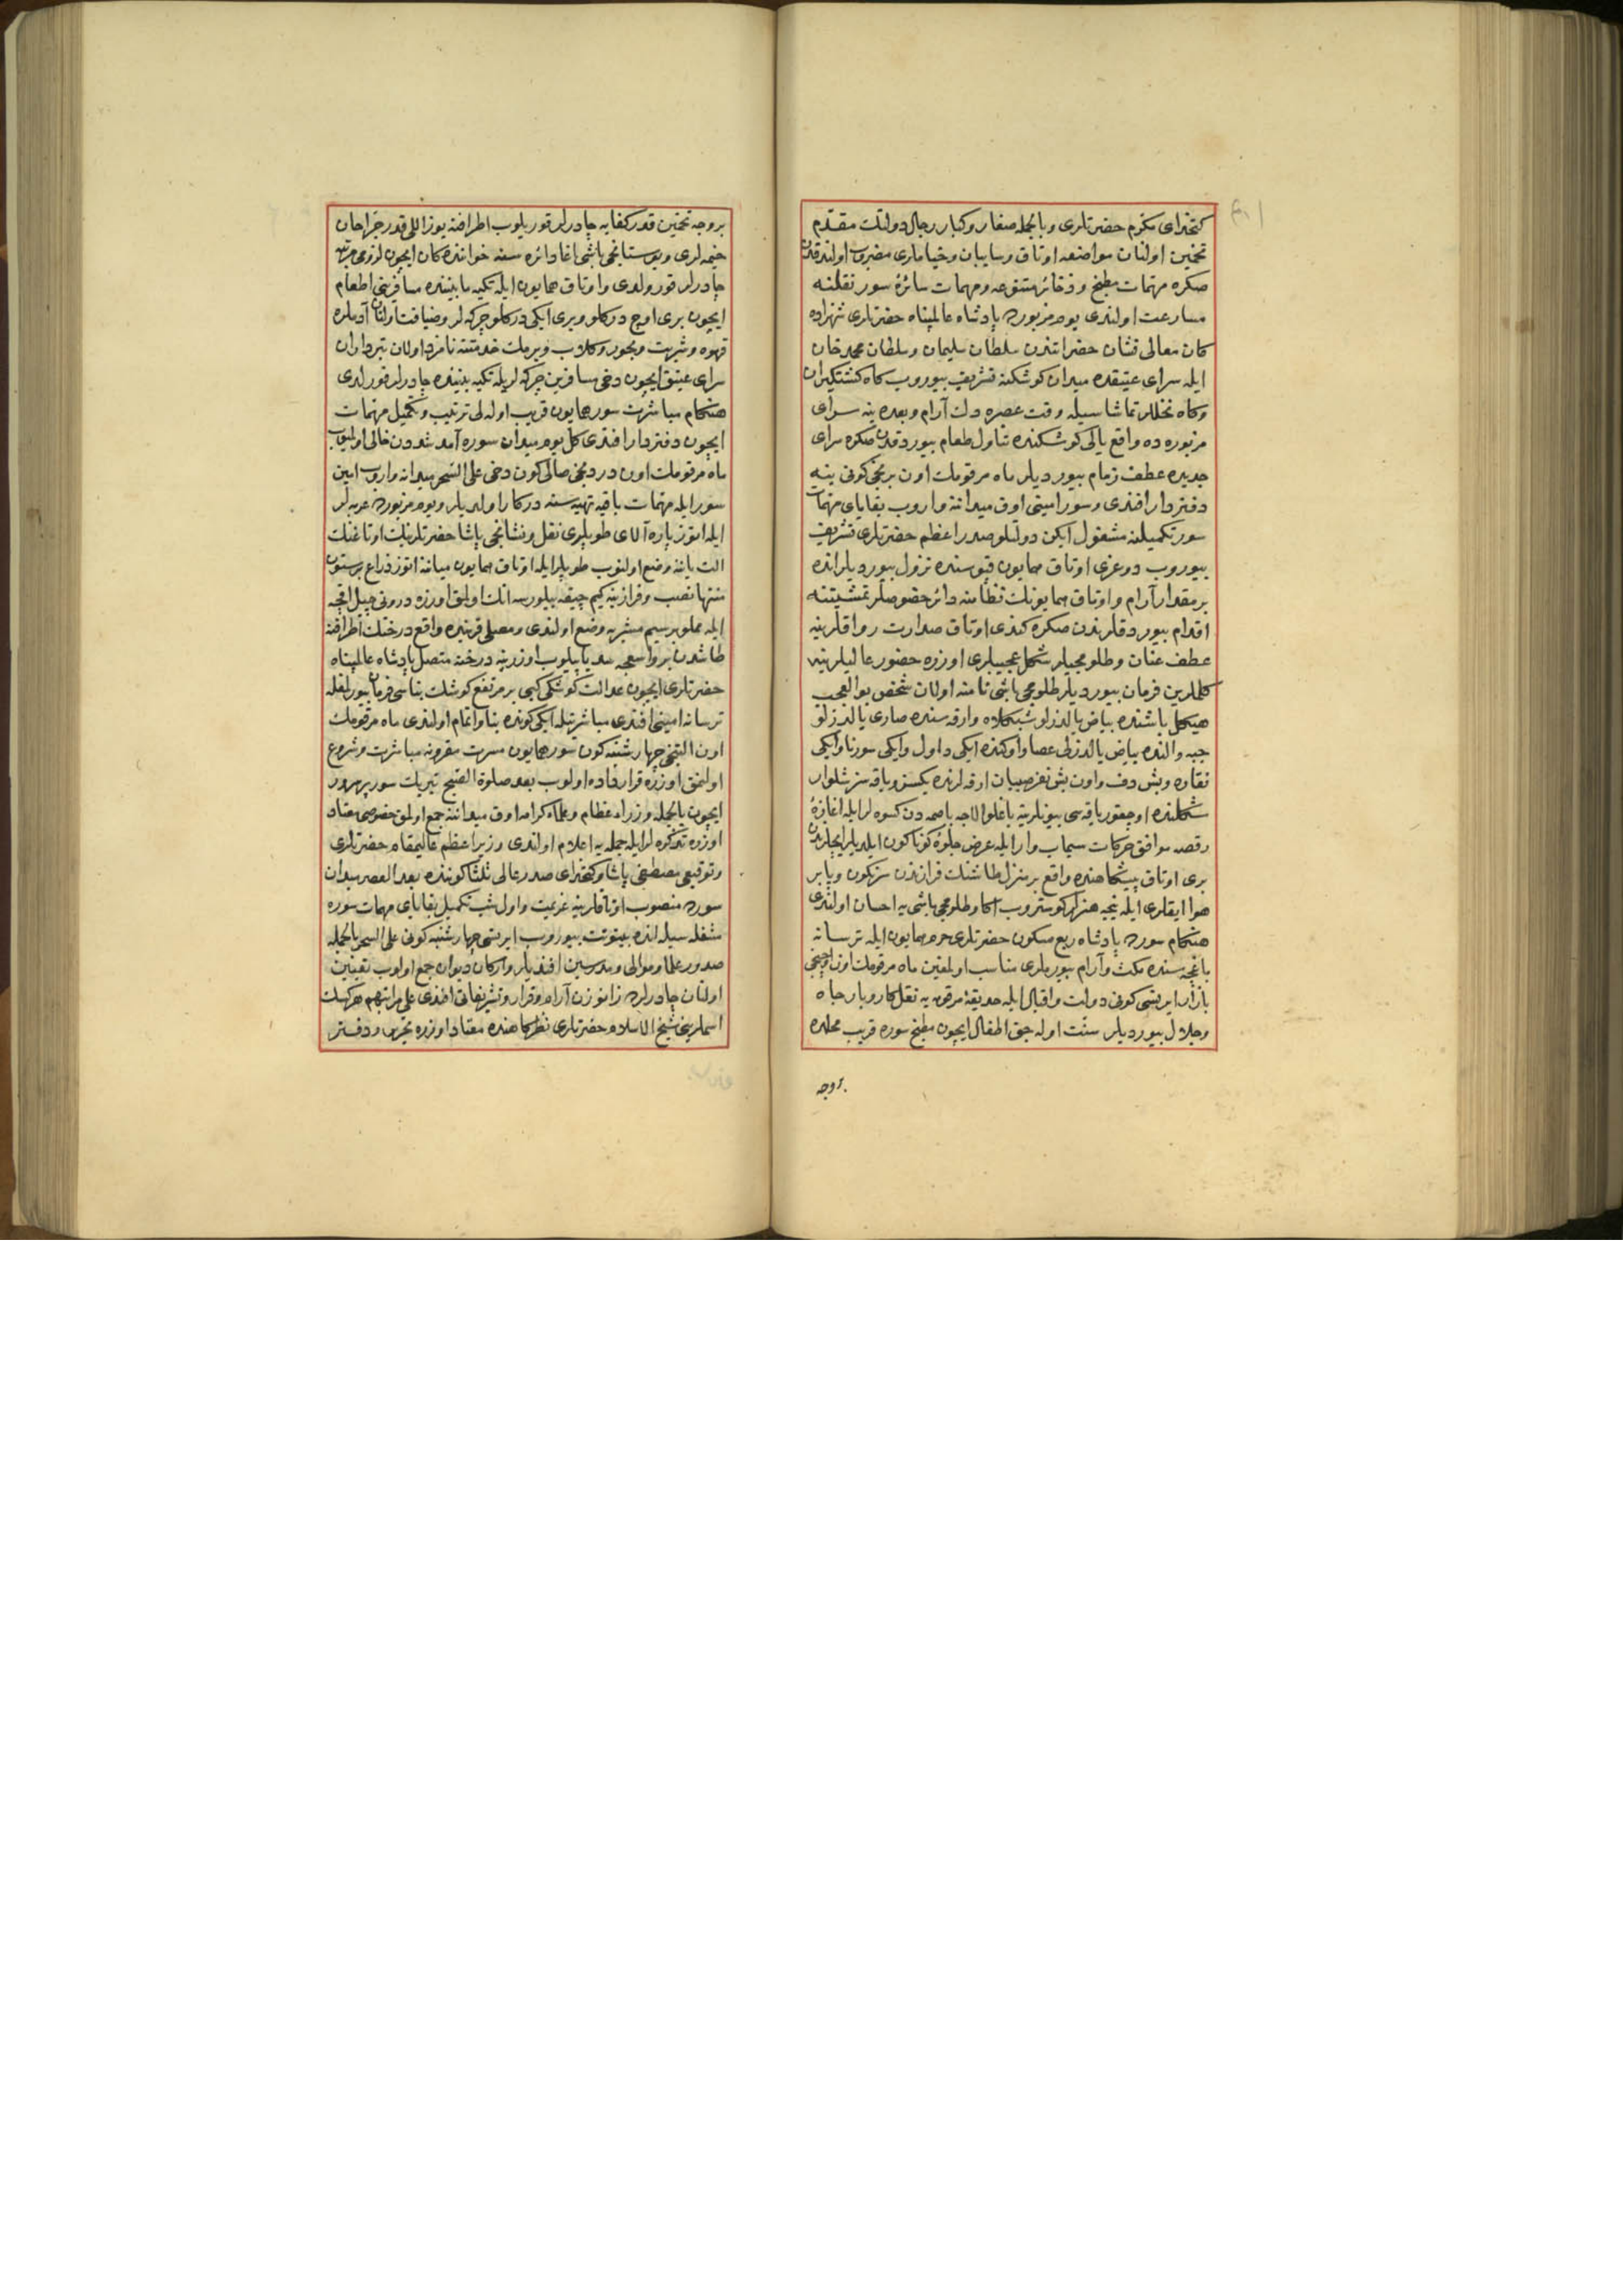 كتخداى مكرم حضرتلرى وبالجمله صغار وكبار رجال دولتك مقدم
تخمين اولنان مواضعه اوتاق وسايبان وخياملرى مضروب اولندقدن
صكره مهمات مطبخ وذخائر متنوعه ومهمات سائرهٔ سور نقلنه
مسارعت اولندى يوم مزبورده پادشاه عالمپناه حضرتلرى شهزاده
كان معالى نشان حضراتندن سلطان سليمان وسلطان محمد خان
ايله سراى عتيقده ميدان كوشكنه تشريف بيوروب كاه كشتكيران
وكاه نخللر تماشاسيله وقت عصره دك آرام وبعده ينه سراى
مزبوره ده واقع يالى كوشكنده تناول طعام بيوردقدن صكره سراى
جديده عطف زمام بيورديلر ماه مرقومك اون برنجى كونى ينه
دفتردار افندى وسور امينى اوق ميداننه واروب بقاياى مهمات
سور تكميلنه مشغول ايكن دولتلو صدر اعظم حضرتلرى تشريف
بيوروب دوغرى اوتاق همايون قپوسنده نزول بيورديلر انده
بر مقدار آرام واوتاق همايونك نظامنه دائر خصوصلر تمشيتنه
اقدام بيوردقلرندن صكره كندى اوتاق صدارت رواقلرينه
عطف عنان وطلومجيلر شكل عجيبلرى اوزره حضور عاليلرينه
كلملرين فرمان بيورديلر طلومجى باشى نامنه اولان شخص بوالعجب
هيكل باشنده بياض يالدزلو شبكلاه وارقه سنده صارى يالدزلو
جبه والنده بياض يالدزلى عصا واوكنده ايكى داول وايكى سورنا وايكى
نقاره وبش دف واون بش نفر صبيان ارقه لرنده يكسز وياقه سز شلوار
شكلنده اوچقور ياقه سى بيونلرينه باغلو الاجه باصمه دن كسوه لر ايله اغازهٔ
رقصه موافق حركات سيماب وار ايله عرض جلوهٔ كوناكون ايلديلر ايچلرندن
برى اوتاق پيشكاهنده واقع بر منزل طاشنك فرازندن سرنكون وپا بر
هوا ايقلرى ايله نيجه هنرلر كوستروب اكا وطلومجى باشى يه احسان اولندى
هنكام سورده پادشاه ربع مسكون حضرتلرى حرم همايون ايله ترسانه
باغچه سنده مكث وآرام بيورملرى مناسب اولمغين ماه مرقومك اون اوچنجى
بازار ايرتسى كونى دولت واقبال ايله حديقهٔ مرقومه يه نقل كاروبار جاه
وجلال بيورديلر سنت اوله جق اطفال ايچون مطبخ سوره قريب محلده
بروجه
بروجه تخمين قدر كفايه چادرلر قوريلوب اطرافنه يوز اللى قدر جراحان
خيمه لرى وبوستانجى باشى اغا دائره سنه خواننده كان ايچون لزومى مرتبه
چادرلر قورولدى واوتاق همايون ايله تكيه مابيننده مسافرينى اطعام
ايچون برى اوچ دركلو وبرى ايكى دركلو چركه لر وضيافت اولنان آدملره
قهوه وشربت وبخور وكلاب ويرمك خدمتنه نامزد اولان تبرداران
سراى عتيق ايچون دخى مسافرين چركه لريله تكيه بيننده چادرلر قورلدى
هنكام مباشرت سور همايون قريب اوله لى ترتيب وتكميل مهمات
ايچون دفتردار افندى كل يوم ميدان سوره آمد شددن خالى اولميوب
ماه مرقومك اون دردنجى صالى كون دخى على السحر ميدانه واروب امين
سور ايله مهمات باقيه تهيه سنه دركار اولديلر ويوم مزبورده عربه لر
ايله اوتوز پاره آلاى طوپلرى نقل ونشانجى پاشا حضرتلرينك اوتاغنك
الت ياننه وضع اولنوب طوپلر ايله اوتاق همايون ميانه اتوز ذراع بر ستون
منتها نصب وفرازينه كيم چيقه بيلورسه انك اولمق اوزره درونى چيل اقچه
ايله مملو بر سيم مشربه وضع اولندى ومصلى قربنده واقع درختك اطرافنه
طاشدن بر واسعجه سد ياپيلوب اوزرينه درخته متصل پادشاه عالمپناه
حضرتلرى ايچون عدالت كوشكى كبى بر مرتفع كوشك بناسى فرمان بيورلمغله
ترسانه امينى افندى مباشرتيله ايكى كونده بنا واتمام اولندى ماه مرقومك
اون التنجى چهارشنبه كون سور همايون مسرت مقرونه مباشرت وشروع
اولنمق اوزره قرارداده اولوب بعد صلوة الصبح تبريك سور پرسرور
ايچون بالجمله وزراء عظام وعلماء كرام اوق ميداننه جمع اولمق خصوصى معتاد
اوزره تذكره لر ايله جمله يه اعلام اولندى وزير اعظم عاليمقام حضرتلرى
وتوقيعى مصطفى پاشا وكتخداى صدر عالى ثلثا كوننده بعد العصر ميدان
سورده منصوب اوتاقلرينه عزيمت واول شب تكميل بقاياى مهمات سوره
مشغله سيله انده بيتوتت بيوروب ايرتسى چهارشنبه كونى على السحر بالجمله
صدور علما وموالى ومدرسين افنديلر واركان ديوان جمع اولوب تعيين
اولنان چادرلرده زانوزن آرام وقرار وتشريفاتى افندى على مراتبهم هر كسك
اسملرينى شيخ الاسلام حضرتلرى نظركاهنده معتاد اوزره تحرير ودفتر